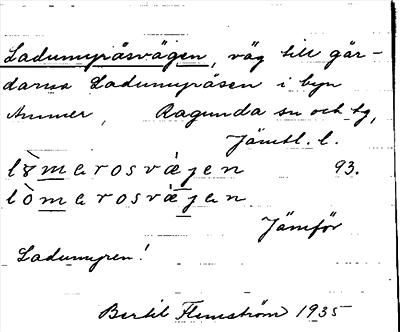 Ladumyråsvägen, väg till går-
darna Ladumyråsen i byn
Ammer, Ragunda sn och tg,
Jämtl. l.
lòmerosvàjen 93.
lòmerosvàjen
Jämför
Ladumyren!
Bertil Flemström 1935